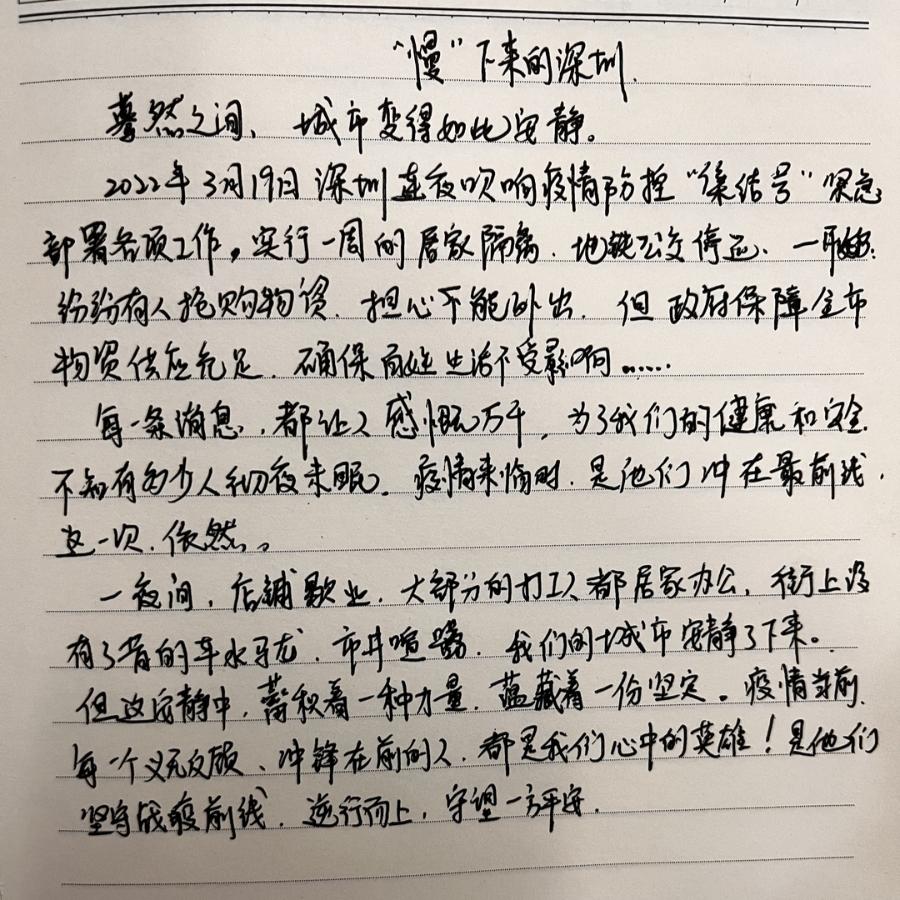 “慢”下来的深圳.
蓦然之间、城市变得如此安静。
2022年3月19日深圳连夜吹响疫情防控“集结号”紧急
部署各项工作。实行一周的居家隔离.地铁公交停运、一时间:
纷纷有人抢购物资.担心不能外出.但政府保障全市
物资供应充足.确保百姓生活不受影响……
每一条消息,都让人感慨万千,为了我们的健康和安全.
不知有多少人彻夜未眠。疫情来临时.是他们冲在最前线,
这一次.依然。
一夜间,店铺歇业.大部分的打工人都居家办公,街上没
有了昔的车水马龙.市井喧嚣.我们的城市安静了下来。
但这安静中,蓄积着一种力量.蕴藏着一份坚定。疫情当前.
每一个义无反顾、冲锋在前的人.都是我们心中的英雄!是他们
坚守战疫前线.逆行而上,守望一方平安.